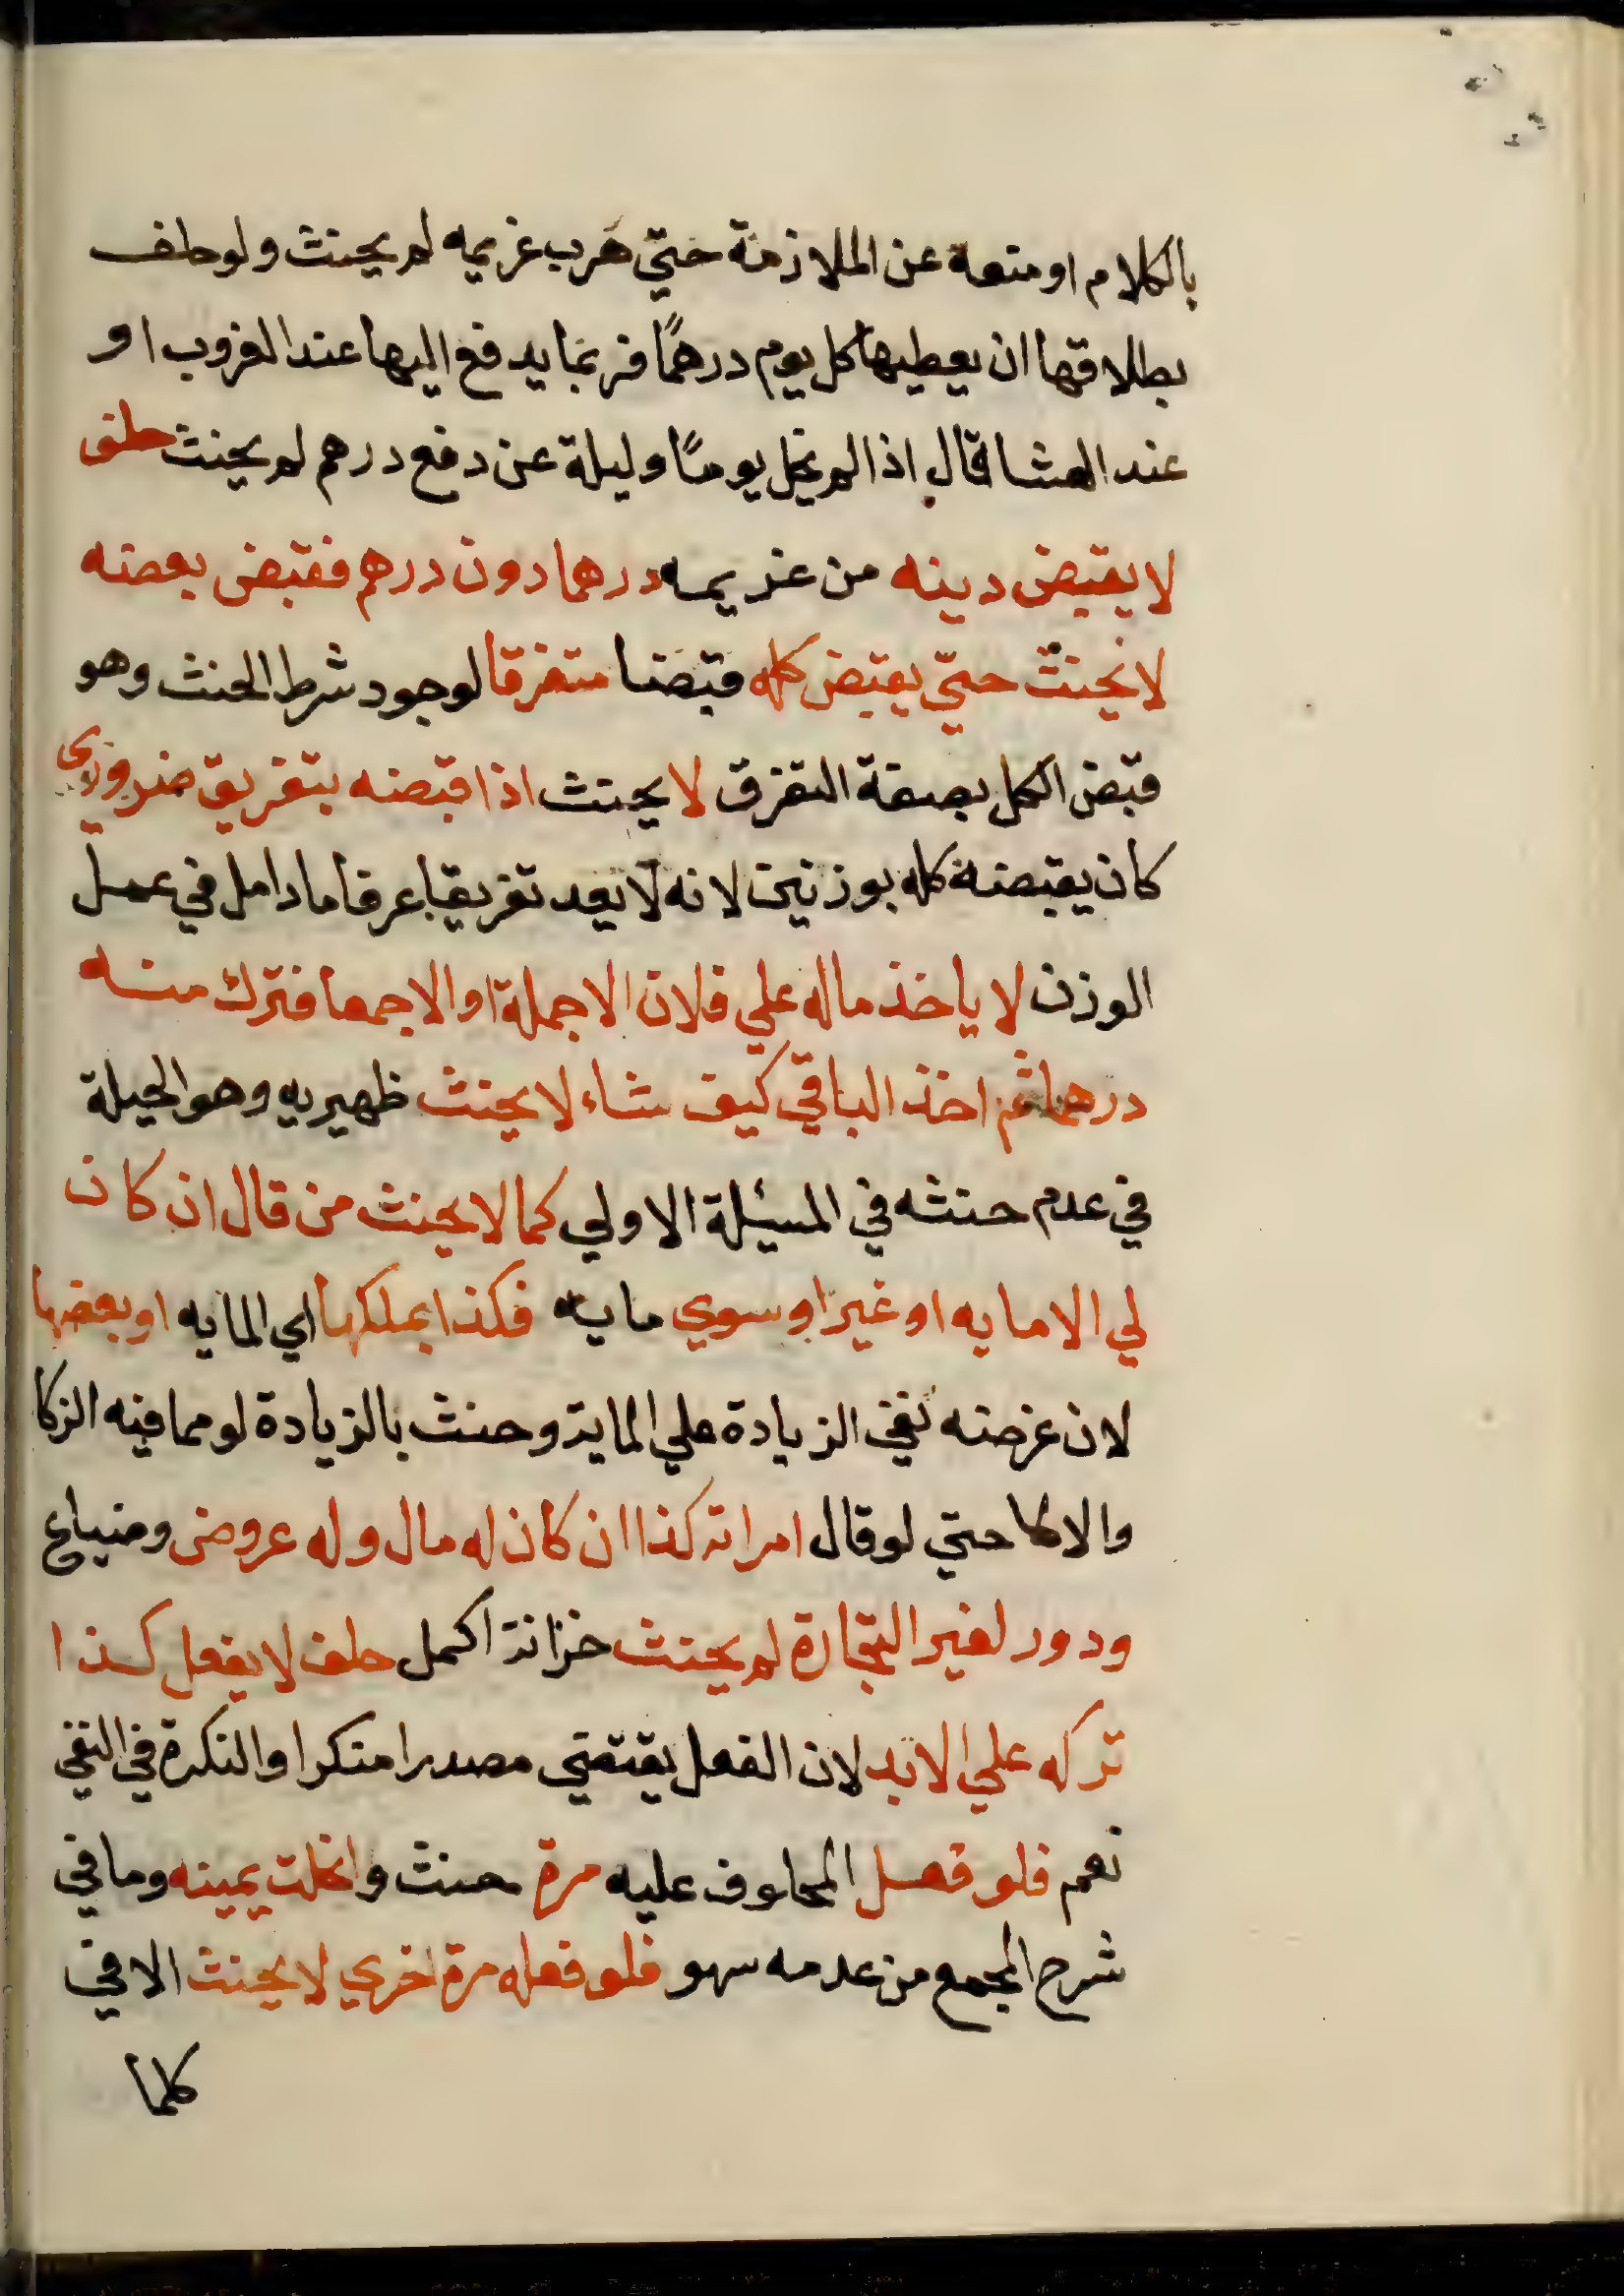 بالكلام او منعه عن الملازمة حتي هرب غريمه لم يحنث ولو حلف
بطلاقها ان يعطيها كل يوم درهمًا فربما يدفع اليها عند الغروب او
عند العشا قال اذا لم يخل يومًا وليلة عن دفع درهم لم يحنث حلف
لا يقبض دينه من غريمه درهما دون درهم فقبض بعضه
لا يحنث حتي يقبض كله قبضا متفرقا لوجود شرط الحنث وهو
قبض الكل بصفة التفرق لا يحنث اذا قبضه بتفريق ضروري
كان يقبضه كله بوزنين لانه لا يعد تفريقا عرفا مادامل في عمل
الوزن لا ياخذ ماله علي فلان الاجملة او الاجمعا فترك منه
درهما ثم اخذ الباقي كيف شاء لا يحنث ظهيريه وهو الحيلة
في عدم حنثه في المسئلة الاولي كما لا يحنث من قال ان كان
لي الا مايه او غير او سوي مايه فكذا بملكها اي المايه او بعضها
لان غرضه نفي الزيادة علي الماية وحنث بالزيادة لو مما فيه الزكا
والا لا حتي لو قال امراته كذا ان كان له مال وله عروض وضياع
ودور لغير التجارة لم يحنث خزانة اكمل حلف لا يفعل كذا
تركه علي الابد لان الفعل يقتضي مصدرا منكرا والنكرة في النفي
تعم فلو فعل المحلوف عليه مرة حنث وانحلت يمينه وما في
شرح المجمع من عدمه سهو فلو فعله مرة اخري لا يحنث الا في
كلما